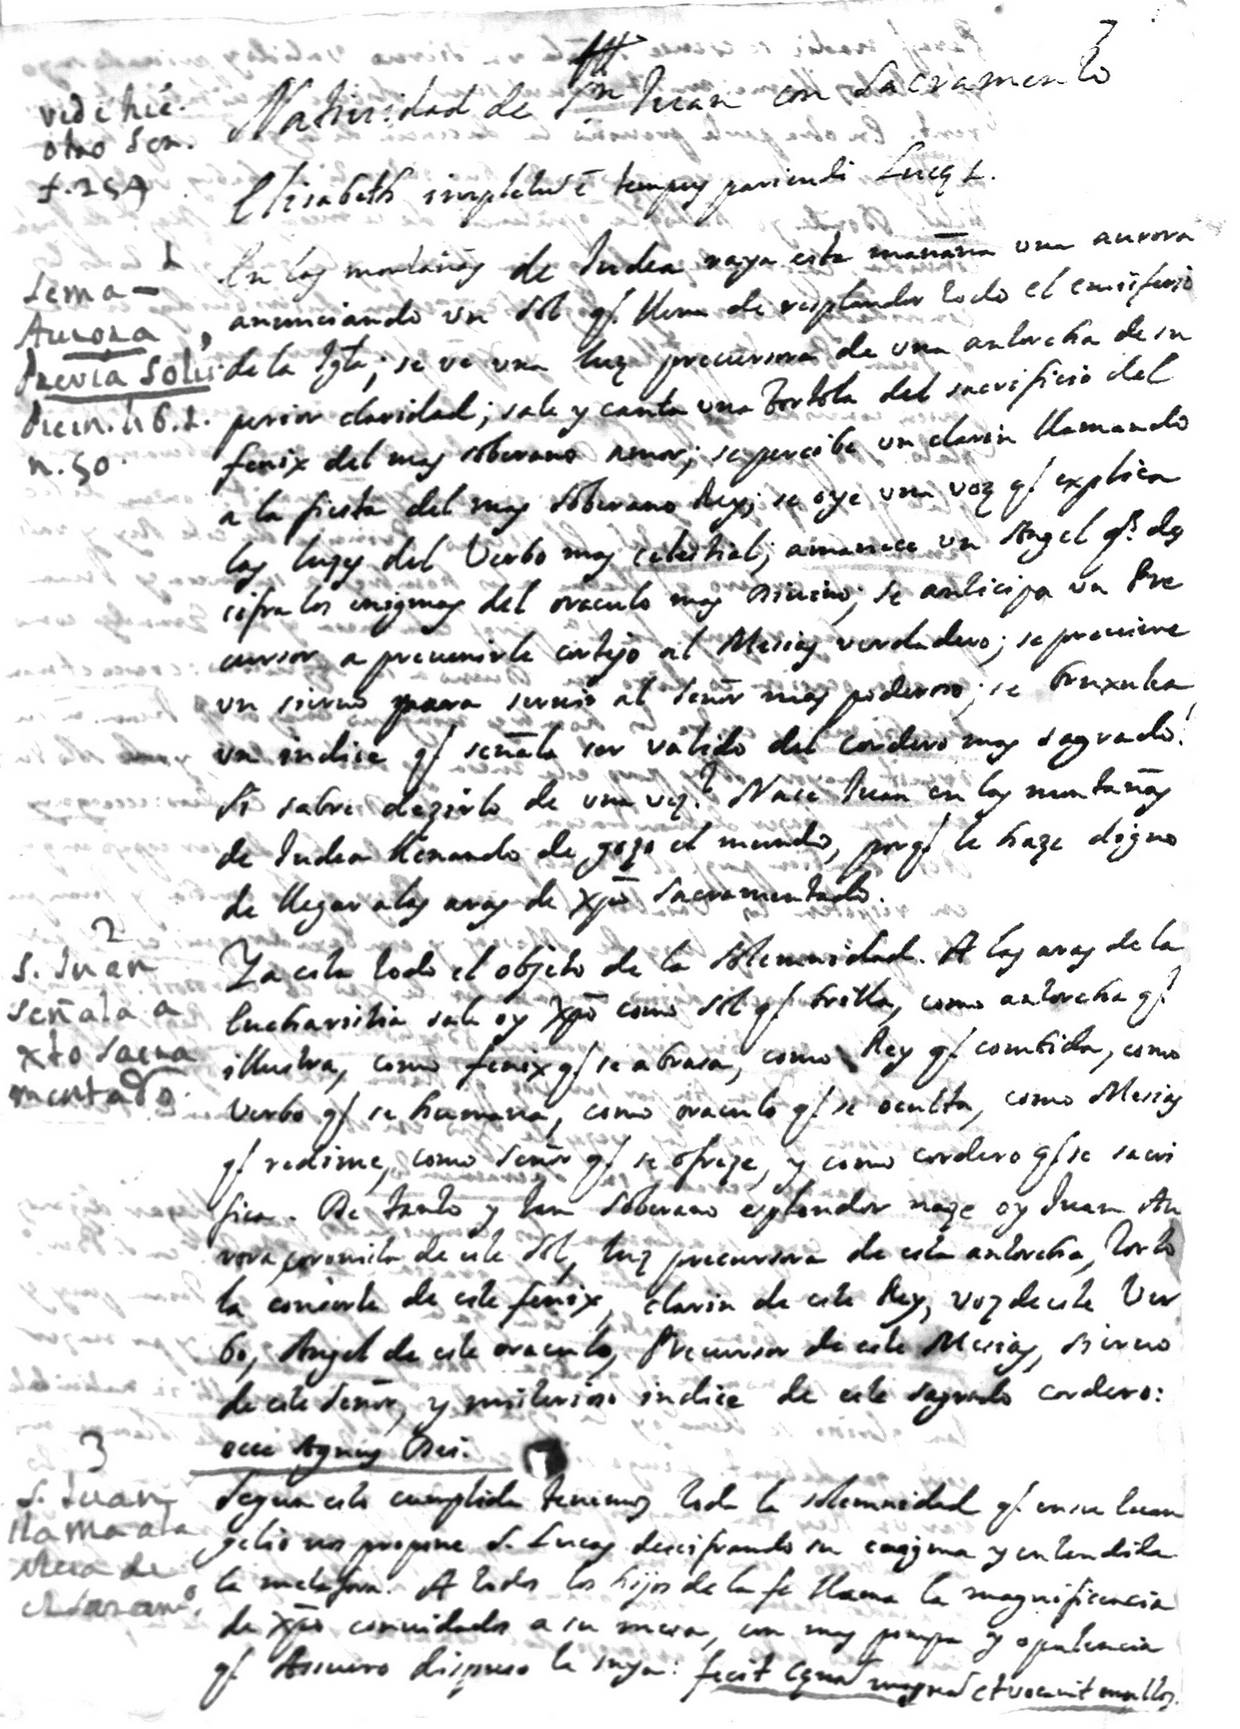 Natiuidad de Sn Juan con Sacramento
vide hic
otro Ser.
f. 257
Elisabeth impletum ē tempus pariendi Lucę 1.
1
Tema
Aurora
Prævia Solis
n. 50.
En las montañas de Judea raya esta mañana una aurora
anunciando un Sol q̄ llena de resplandor todo el emisferio
de la Iglª; se ve una luz precursora de una antorcha de su
perior claridad; sale y canta una tortola del sacrificio del
fenix del mas soberano amor; se percibe un clarin llamando
a la fiesta del mas soberano Rey; se oye una voz q̄ explica
las luzes del Verbo mas celestial; amanece un Angel q̄ des
cifra los enigmas del oraculo mas Diuino; se anticipa un Pre
cursor a preuenirle cortejo al Mesias verdadero; se preuiene
un sieruo para seruir al señor mas poderoso; se bruxulea
un indice q̄ señala ser valido del cordero mas sagrado!
dezirlo de una vez? Nace Juan en las montañas
de Judea llenando de gozo el mundo, porq̄ le haze digno
de llegar a las aras de Xpō Sacramentado.
2
S. Juan
señala a
xto sacra
mentado.
Ya esta todo el objeto de la solemnidad. A las aras de la
Eucharistia sale oy Xpō como Sol q̄ brilla, como antorcha q̄
illustra, como fenix q̄ se abrasa, como Rey q̄ combida, como
Verbo q̄ se humana, como oraculo q̄ se oculta, como Mesias
q̄ redime, como Señor q̄ se ofreze, y como cordero q̄ se sacri
fica. De tanto y tan soberano esplendor naze oy Juan Au
rora de este Sol, luz precursora de esta antorcha, torto
la consorte de este fenix, clarin de este Rey, voz de este Ver
bo, Angel de este oraculo, Precursor de este Mesias, sieruo
de este señor, y misterioso indice de este sagrado cordero:
ecce Agnus Dei.
3
S. Juan
llama a la
Mesa de
Segun esto cumplida tenemos toda la solemnidad q̄ en su Euan
gelio nos propone S. Lucas descifrando su enigma y entendida
la metafora. A todos los hijos de la fe llama la magnificencia
de Xpō conuidados a su mesa, con mas pompa y opulencia
q̄ Assuero dispuso la suya: fecit cęnā magnā et vocauit multos.